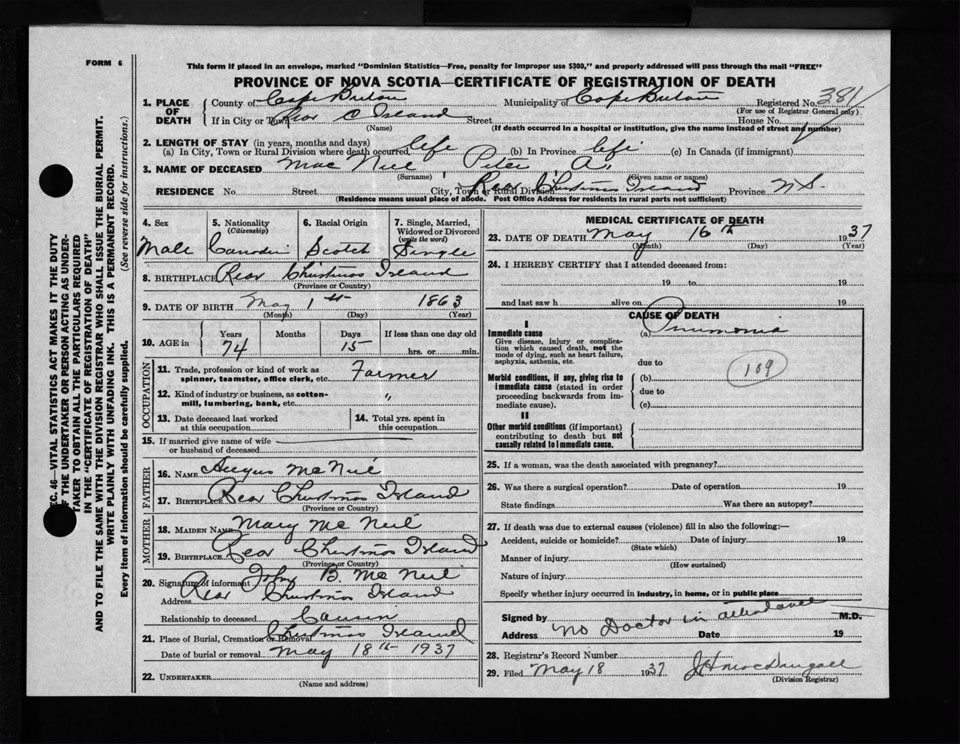 FORM 6
This form if placed in an envelope, marked "Dominion Statistics—Free, penalty for improper use $300," and properly addressed will pass through the mail "FREE"
PROVINCE OF NOVA SCOTIA—CERTIFICATE OF REGISTRATION OF DEATH
1. PLACE OF DEATH County of Cape Breton Municipality of Cape Breton Registered No. 381
(For use of Registrar General only)
If in City or Town Rear C Island Street House No.
(Name) (If death occurred in a hospital or institution, give the name instead of street and number)
2. LENGTH OF STAY (in years, months and days)
(a) In City, Town or Rural Division where death occurred life (b) In Province life (c) In Canada (if immigrant)
3. NAME OF DECEASED Mac Neil Peter A.
(Surname) (Given name or names)
RESIDENCE No. Street City, Town or Rural Division Rear Christmas Island Province N S.
(Residence means usual place of abode. Post Office Address for residents in rural parts not sufficient)
4. Sex
Male
5. Nationality
(Citizenship)
Canadin
6. Racial Origin
Scotch
7. Single, Married, Widowed or Divorced
(write the word)
Single
8. BIRTHPLACE Rear Christmas Island
(Province or Country)
9. DATE OF BIRTH May 1st 1863
(Month) (Day) (Year)
10. AGE in
Years
74
Months
Days
15
If less than one day old
hrs. or min.
OCCUPATION
11. Trade, profession or kind of work as spinner, teamster, office clerk, etc. Farmer
12. Kind of industry or business, as cotton-mill, lumbering, bank, etc. "
13. Date deceased last worked at this occupation
14. Total yrs. spent in this occupation
15. If married give name of wife or husband of deceased
FATHER
16. NAME Angus McNeil
17. BIRTHPLACE Rear Christmas Island
(Province or Country)
MOTHER
18. MAIDEN NAME Mary McNeil
19. BIRTHPLACE Rear Christmas Island
(Province or Country)
20. Signature of informant John B. McNeil
Address Rear Christmas Island
Relationship to deceased Causin
21. Place of Burial, Cremation or Removal Christmas Island
Date of burial or removal May 18th 1937
22. UNDERTAKER
(Name and address)
MEDICAL CERTIFICATE OF DEATH
23. DATE OF DEATH May 16th 1937
(Month) (Day) (Year)
24. I HEREBY CERTIFY that I attended deceased from:
19 to 19
and last saw h alive on 19
CAUSE OF DEATH
I
Immediate cause
Give disease, injury or complication which caused death, not the mode of dying, such as heart failure, asphyxia, asthenia, etc.
(a) Pnumonia
due to
Morbid conditions, if any, giving rise to immediate cause (stated in order proceeding backwards from immediate cause).
(b)
109
due to
(c)
II
Other morbid conditions (if important) contributing to death but not causally related to immediate cause.
25. If a woman, was the death associated with pregnancy?
26. Was there a surgical operation? Date of operation 19
State findings Was there an autopsy?
27. If death was due to external causes (violence) fill in also the following:—
Accident, suicide or homicide? Date of injury 19
(State which)
Manner of injury
(How sustained)
Nature of injury
Specify whether injury occurred in industry, in home, or in public place
Signed by M.D.
no Doctor in attendance
Address Date 19
28. Registrar's Record Number
29. Filed May 18 1937 J H MacDougall
(Division Registrar)
SEC. 46—VITAL STATISTICS ACT MAKES IT THE DUTY
OF THE UNDERTAKER OR PERSON ACTING AS UNDER-
TAKER TO OBTAIN ALL THE PARTICULARS REQUIRED
IN THE "CERTIFICATE OF REGISTRATION OF DEATH"
AND TO FILE THE SAME WITH THE DIVISION REGISTRAR WHO SHALL ISSUE THE BURIAL PERMIT.
WRITE PLAINLY WITH UNFADING INK. THIS IS A PERMANENT RECORD.
Every item of information should be carefully supplied. (See reverse side for instructions.)